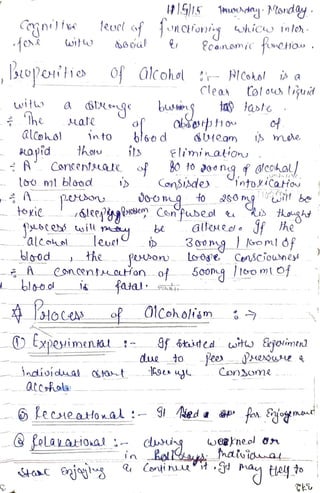 11/5/15 Thursday Monday.
Cognitive level of functioning which inter-
fere with social & Economic function.
Properities Of Alcohol :- Alcohol is a
Clear Colour liquid
with a strong burning taste.
The rate of absorption of
alcohol into blood stream is more
rapid than its Elimination.
A Concentrate of 80 to 200mg of alcohol/
100 ml blood is Considers intoxication
A person 200mg to 250mg will be
toxic, sleepy, Confused & his thought
process will may be altered. If the
alcohol level is 300mg / 100ml Of
blood, the person loose Consciowness
A concentration of 500mg / 100ml Of
blood is fatal.
Process of Alcoholism :→
① Experimental :- It Started with Experiment
due to Peer Pressure &
individual start through Consume
alcohol
② Recreational :- It for Enjoyment
③ Relaxational :- during weekned or
in holidays individual
start Enjoying & Continue it. It may